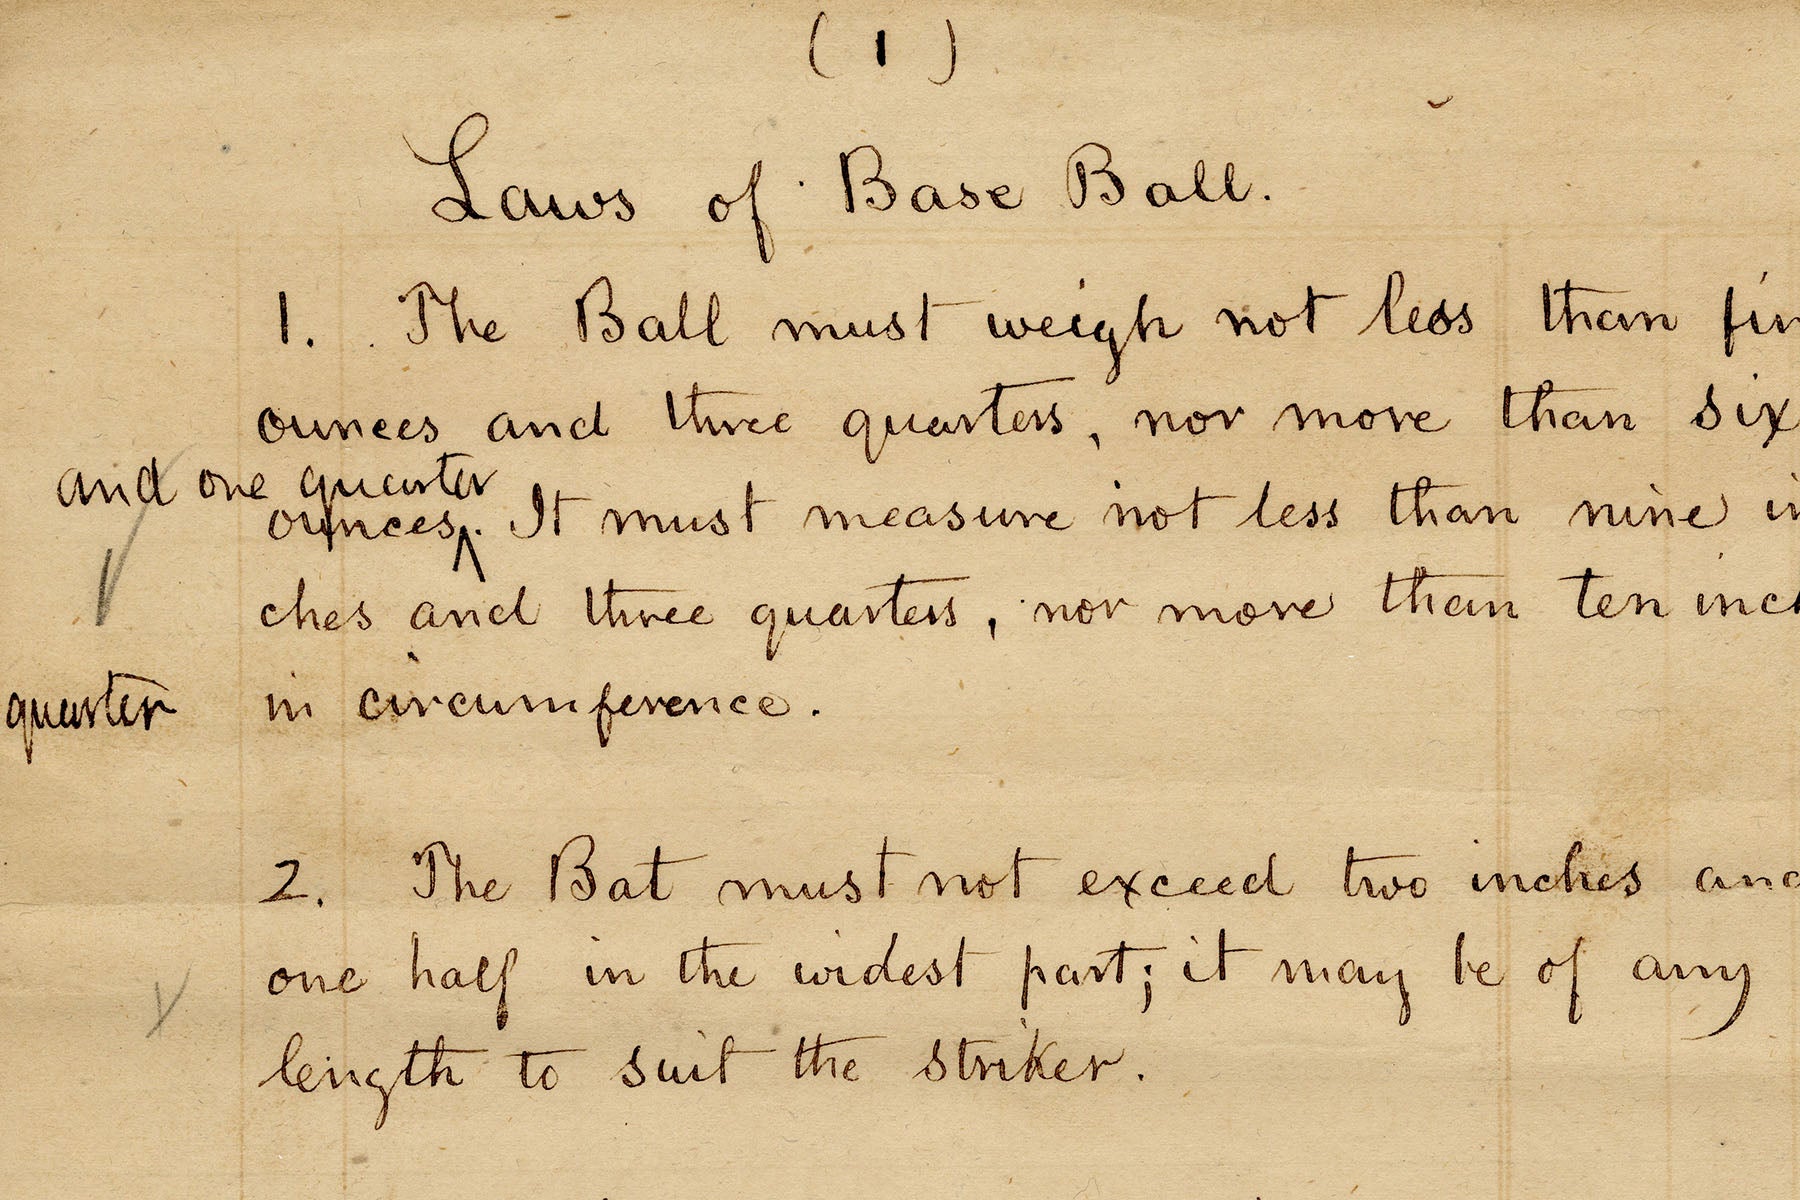 ( 1 )
Laws of Base Ball.
1. The Ball must weigh not less than
ounces and three quarters, nor more than six
and one quarter
ounces. It must measure not less than nine in
ches and three quarters, nor more than ten inc
quarter in circumference.
2. The Bat must not exceed two inches and
one half in the widest part; it may be of any
length to suit the striker.